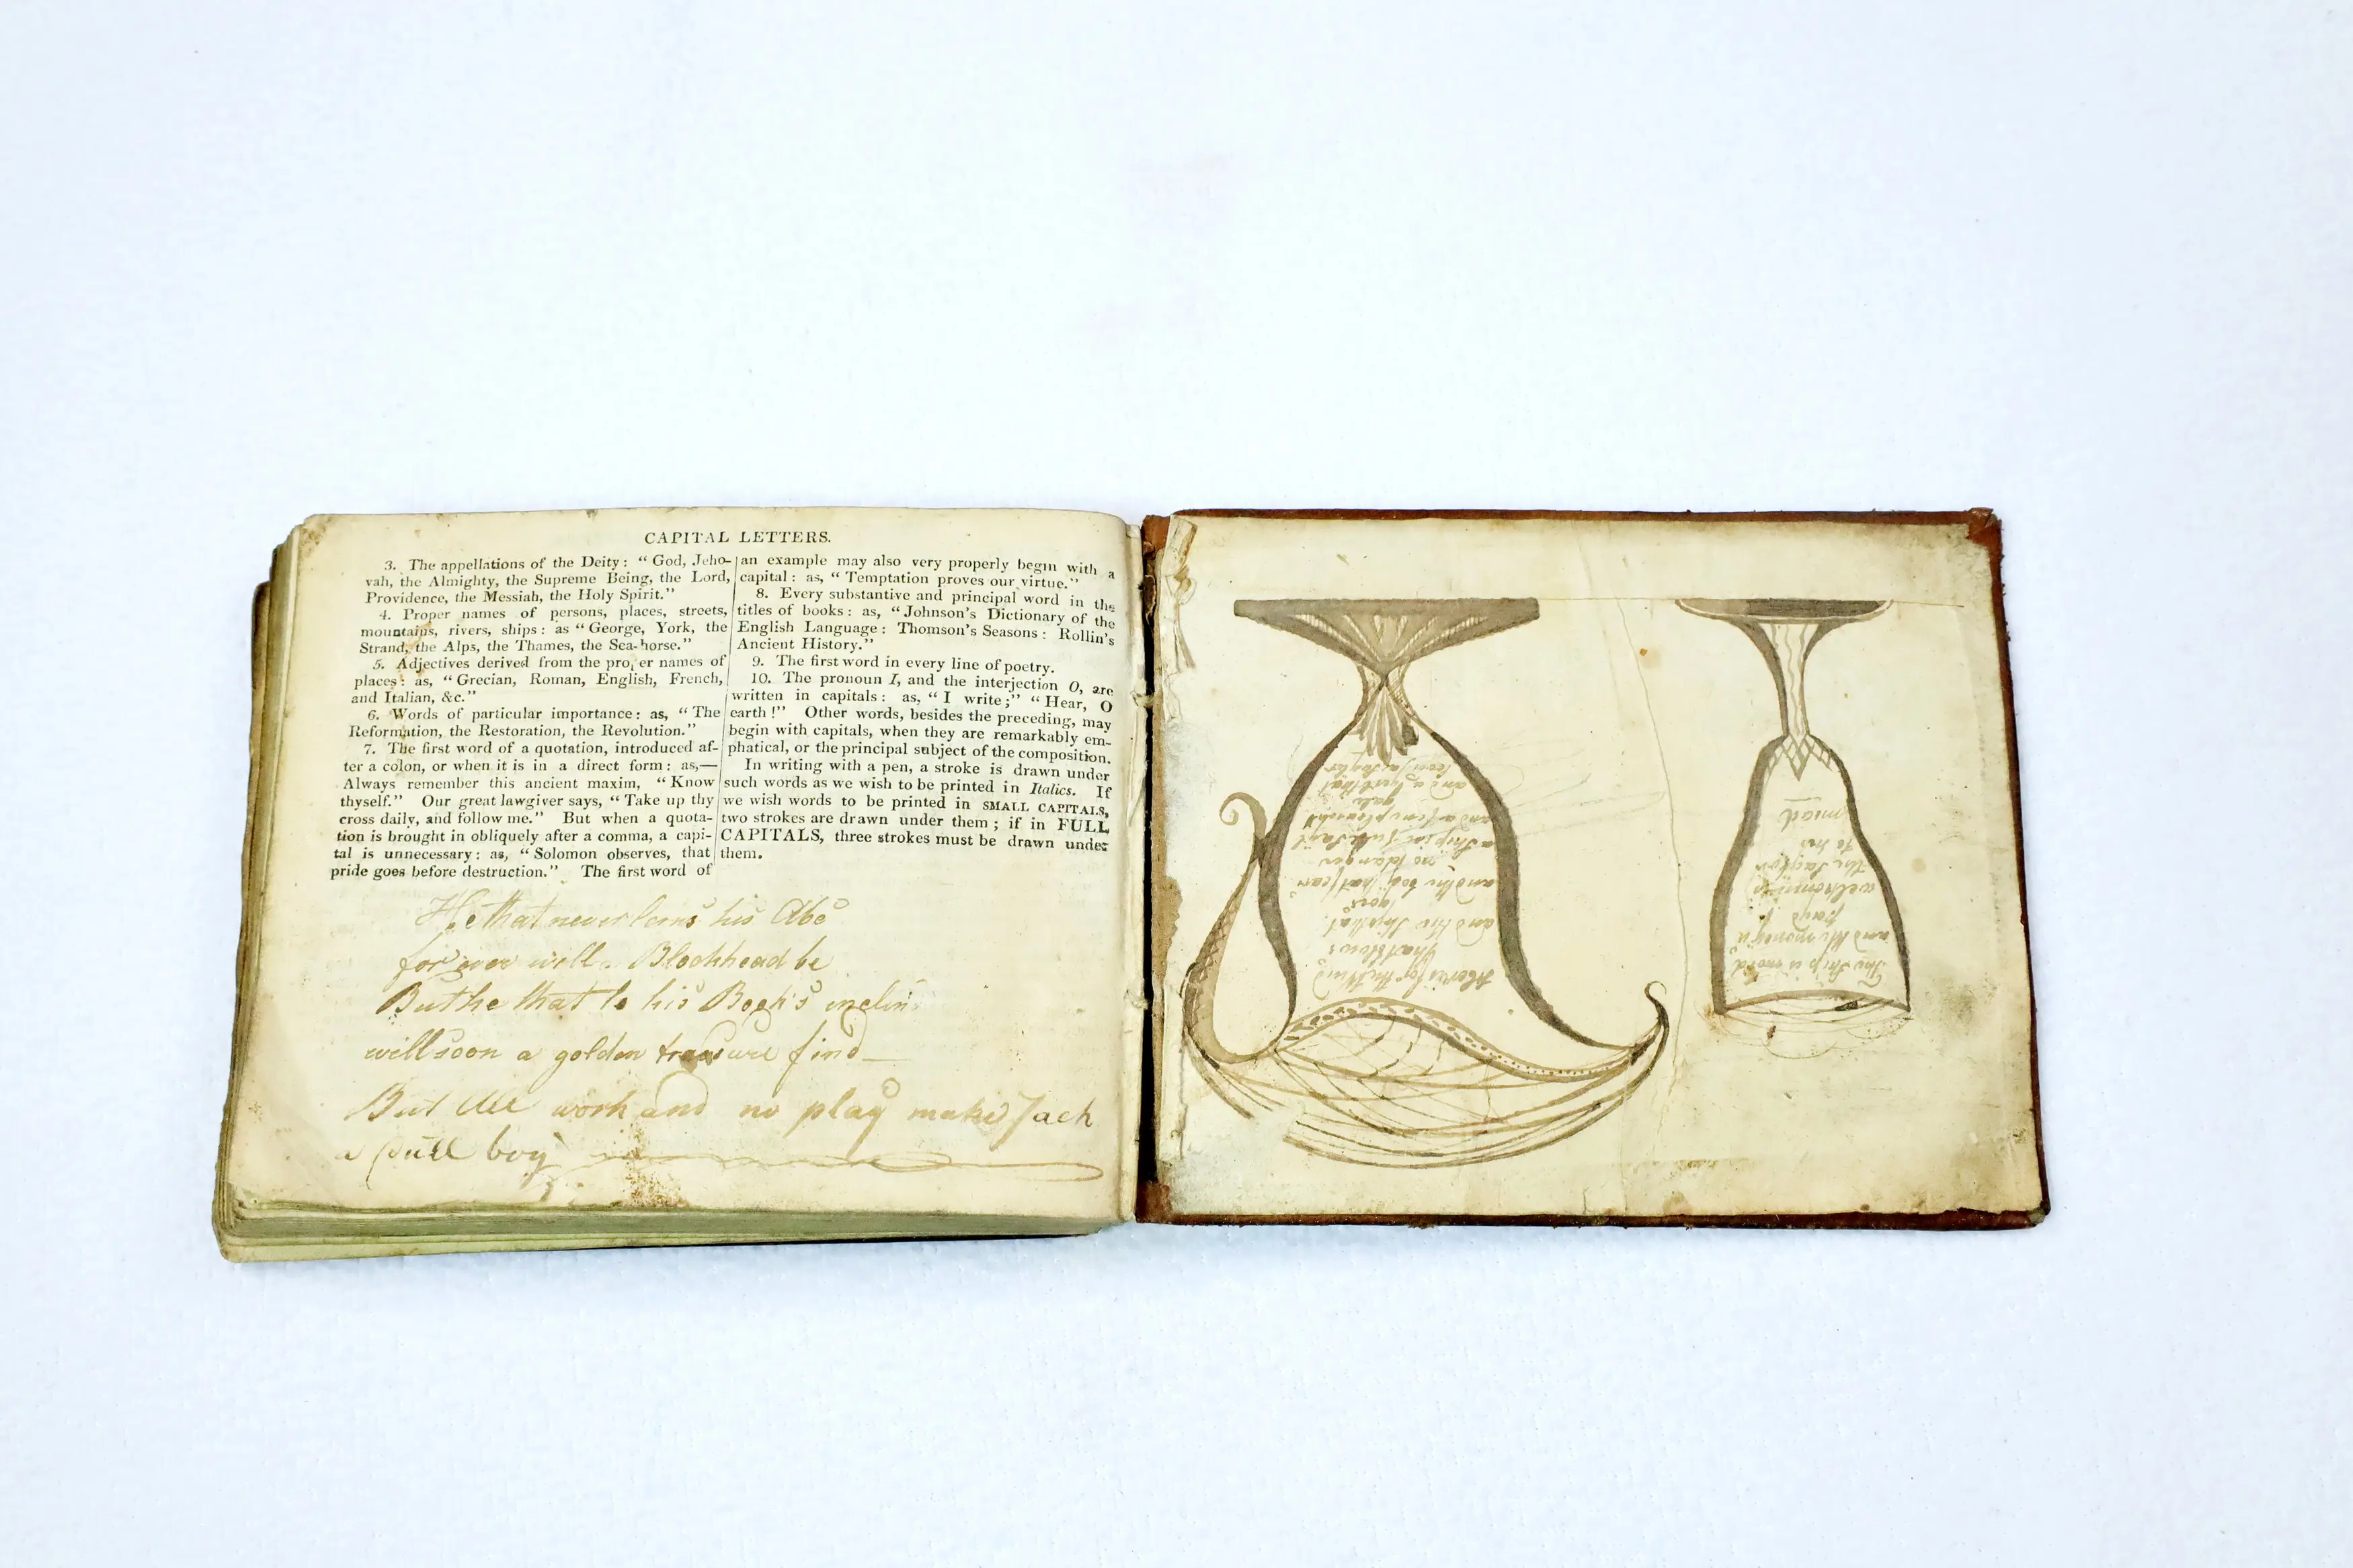 CAPITAL LETTERS.
3. The appellations of the Deity: "God, Jeho-
vah, the Almighty, the Supreme Being, the Lord,
Providence, the Messiah, the Holy Spirit."
4. Proper names of persons, places, streets,
mountains, rivers, ships: as "George, York, the
Strand, the Alps, the Thames, the Sea-horse."
5. Adjectives derived from the proper names of
places: as, "Grecian, Roman, English, French,
and Italian, &c."
6. Words of particular importance: as, "The
Reformation, the Restoration, the Revolution."
7. The first word of a quotation, introduced af-
ter a colon, or when it is in a direct form: as,—
Always remember this ancient maxim, "Know
thyself." Our great lawgiver says, "Take up thy
cross daily, and follow me." But when a quota-
tion is brought in obliquely after a comma, a capi-
tal is unnecessary: as, "Solomon observes, that
pride goes before destruction." The first word of
an example may also very properly begin with a
capital: as, "Temptation proves our virtue."
8. Every substantive and principal word in the
titles of books: as, "Johnson's Dictionary of the
English Language: Thomson's Seasons: Rollin's
Ancient History."
9. The first word in every line of poetry.
10. The pronoun I, and the interjection O, are
written in capitals: as, "I write;" "Hear, O
earth!" Other words, besides the preceding, may
begin with capitals, when they are remarkably em-
phatical, or the principal subject of the composition.
In writing with a pen, a stroke is drawn under
such words as we wish to be printed in Italics. If
we wish words to be printed in SMALL CAPITALS,
two strokes are drawn under them; if in FULL
CAPITALS, three strokes must be drawn under
them.
He that never lerns his Abc
for ever will a Blockhead be
But he that to his Book's inclin
will soon a golden treasure find
But All work and no play make Jack
a dull boy
Heres for the Wind
that blows
and the Ship that
goes
and the boy that fear
no danger
a Ship in full Sail
and a
gale
and a
The Ship is
and the money is
paid
welcome is
the Saylor
to his
miad